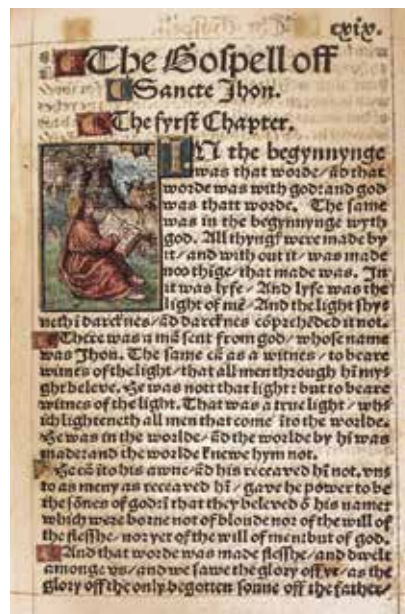 cxix.
The Gospell off
Sancte Jhon.
The fyrst Chapter.
IN the begynnynge
was that worde / ād that
worde was with god: and god
was thatt worde. The same
was in the begynnynge wyth
god. All thyngꝭ were made by
it / and with out it / was made
noo thige / that made was. In
it was lyfe / And lyfe was the
light of mē / And the light shy-
neth i darcknes / ād darcknes cōprehēded it not.
There was a mā sent from god / whose name
was Jhon. The same cā as a witnes / to beare
witnes of the light / that all men through hī my-
ght beleve. He was nott that light: but to beare
witnes of the light. That was a true light / whi-
ch lighteneth all men that come īto the worlde.
He was in the worlde / ād the worlde by hī was
made: and the worlde knewe hym not.
He cā īto his awne / ād his receaved hī not. vn-
to as meny as receaved hī / gave he power to be
the sōnes of god: ī that they beleved ō his name:
which were borne not of bloude nor of the will of
the flesshe / nor yet of the will of men: but of god.
And that worde was made flesshe / and dwelt
amonge vs / and we sawe the glory off yt / as the
glory off the only begotten sonne off the father /